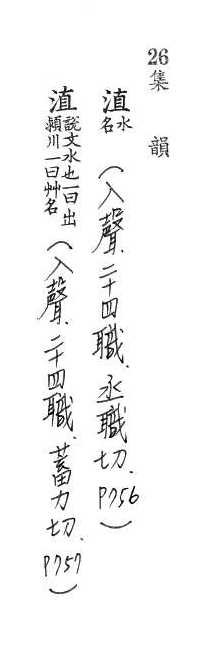 26集　韻
淔水名（入聲．二十四職．丞職切．P756）
淔說文水也一曰出潁川一曰艸名（入聲．二十四職．蓄力切．P757）